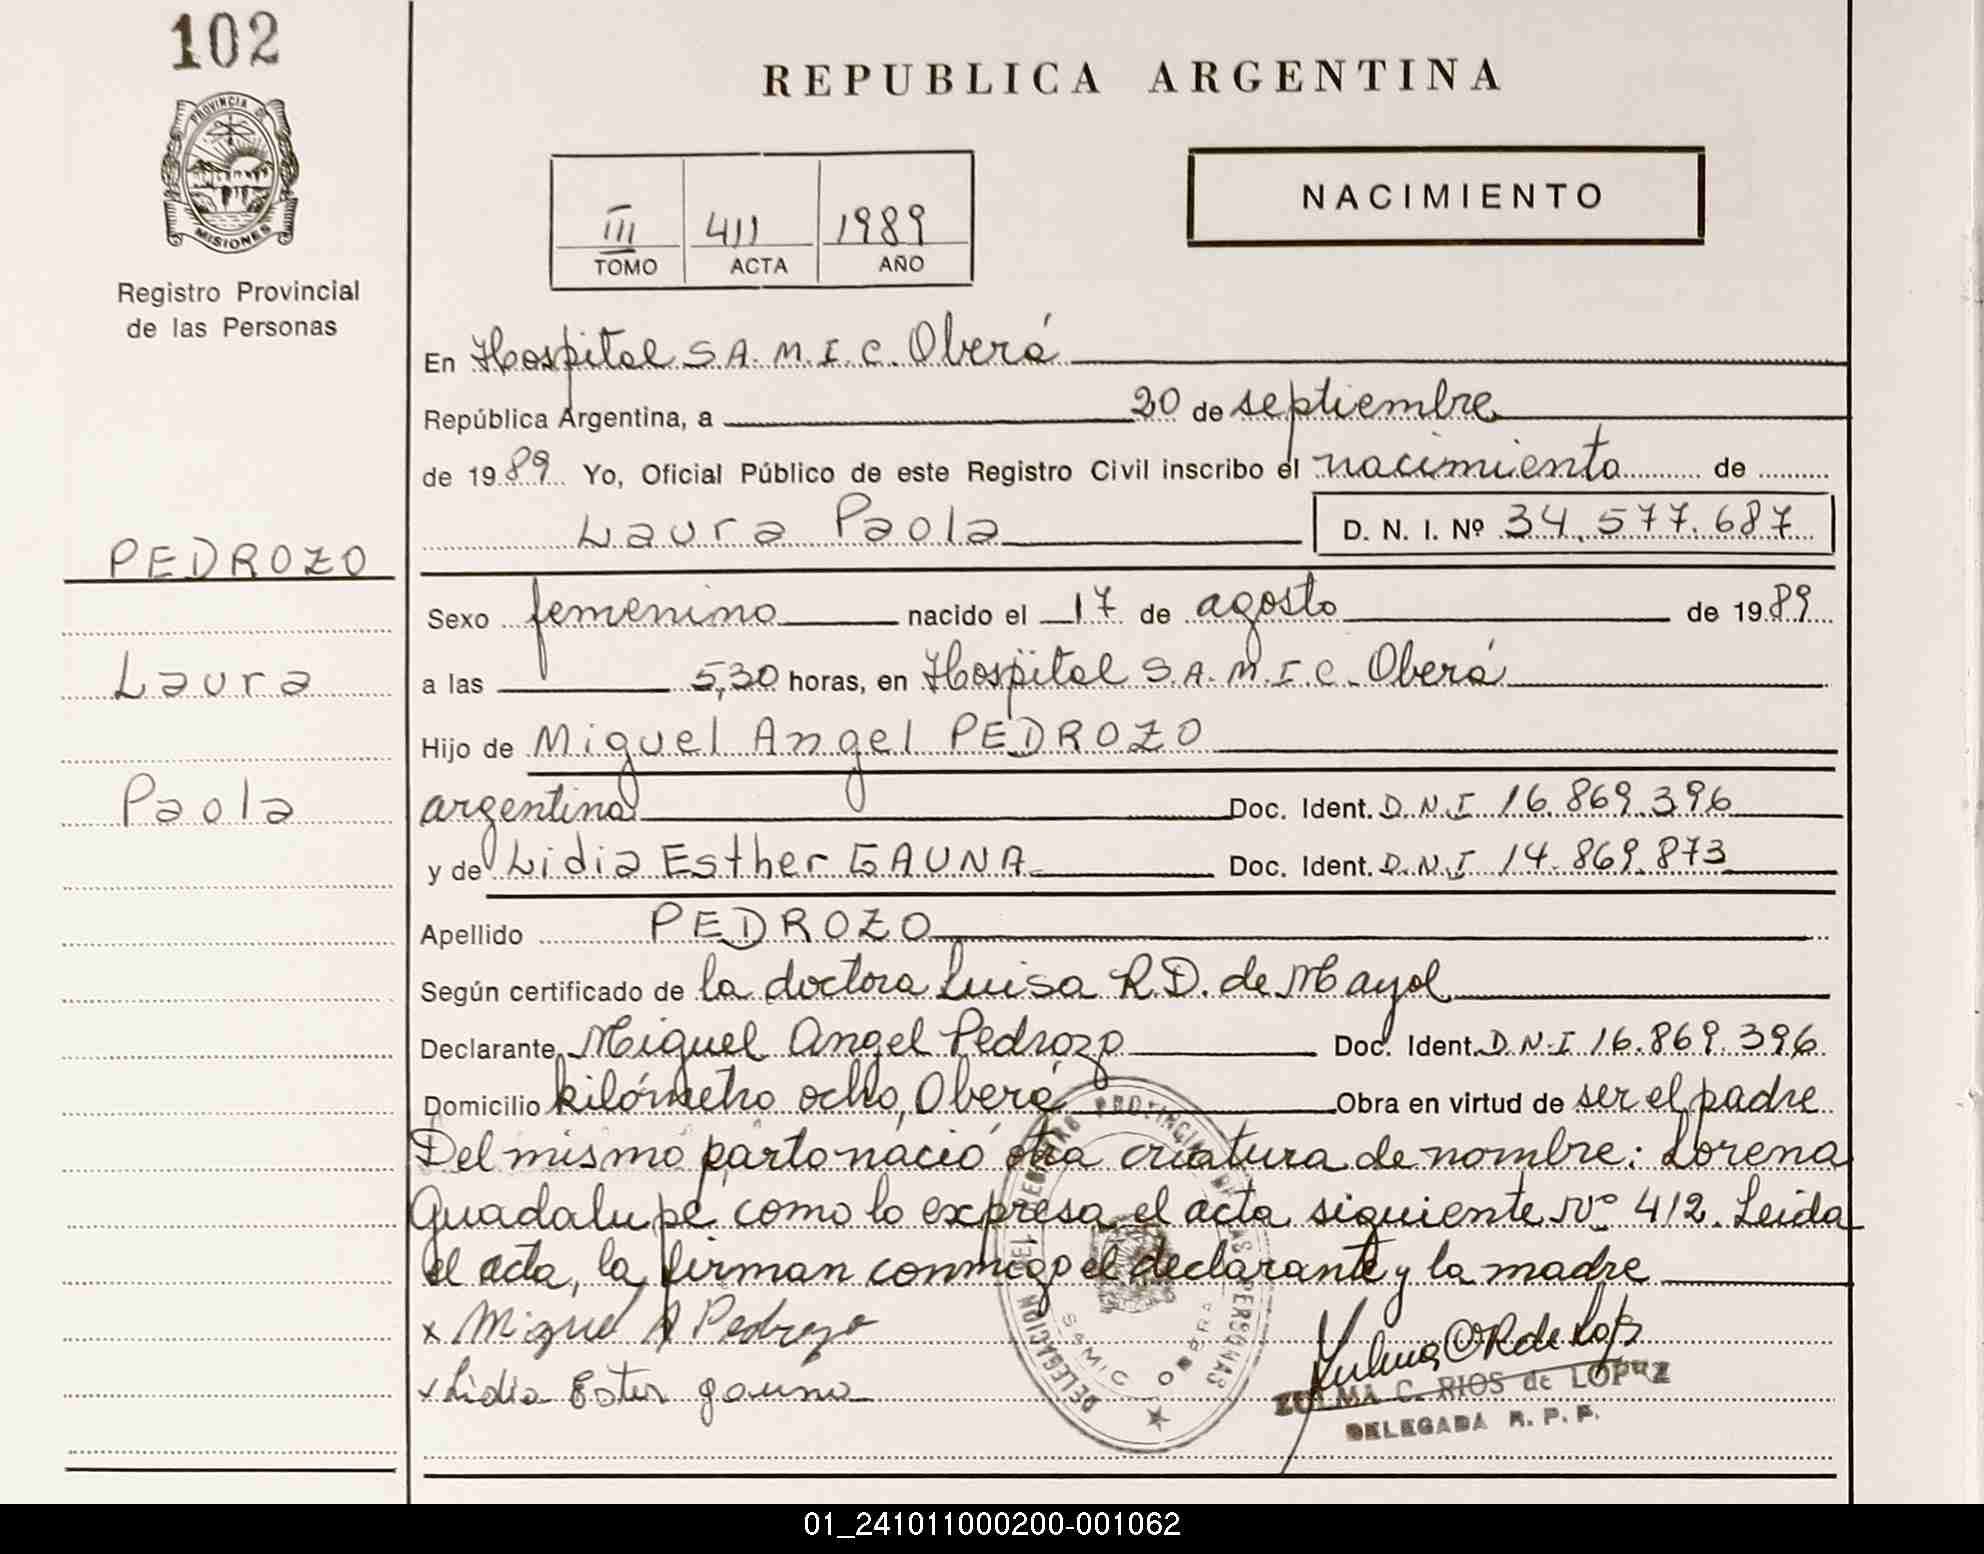 102
PROVINCIA DE
MISIONES
Registro Provincial
de las Personas
REPUBLICA ARGENTINA
III 411 1989
TOMO ACTA AÑO
NACIMIENTO
En Hospital S.A.M.I.C. Oberá
República Argentina, a 20 de septiembre
de 1989 Yo, Oficial Público de este Registro Civil inscribo el nacimiento de
Laura Paola D. N. I. Nº 34.577.687
PEDROZO
Laura
Paola
Sexo femenino nacido el 17 de agosto de 1989
a las 5,30 horas, en Hospital S.A.M.I.C. Oberá
Hijo de Miguel Angel PEDROZO
argentino Doc. Ident. D.N.I 16.869.396
y de Lidia Esther GAUNA Doc. Ident. D.N.I 14.869.873
Apellido PEDROZO
Según certificado de la doctora Luisa R.D. de Mayol
Declarante Miguel Angel Pedrozo Doc. Ident. D.N.I 16.869.396
Domicilio kilómetro ocho, Oberá Obra en virtud de ser el padre
Del mismo parto nació otra criatura de nombre: Lorena
Guadalupe como lo expresa el acta siguiente Nº 412. Leida
el acta, la firman conmigo el declarante y la madre
x Miguel A Pedrozo
x Lidia Ester gauna
DELEGACION DEL REGISTRO PROVINCIAL DE LAS PERSONAS
SAMIC OBERA
Zulma C R de Lopez
ZULMA C. RIOS de LOPEZ
DELEGADA R. P. P.
01_241011000200-001062